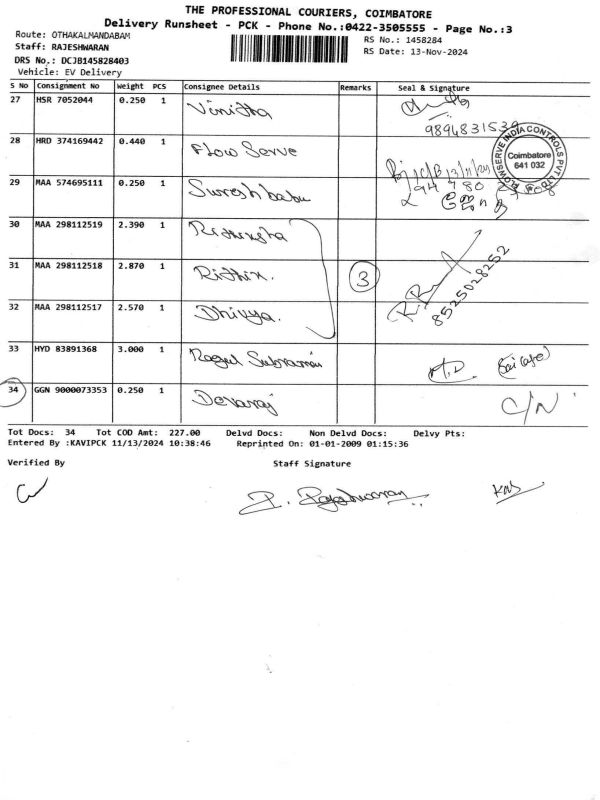 THE PROFESSIONAL COURIERS, COIMBATORE
Delivery Runsheet - PCK - Phone No.:0422-3505555 - Page No.:3
Route: OTHAKALMANDABAM
RS No.: 1458284
Staff: RAJESHWARAN
RS Date: 13-Nov-2024
DRS No.: DCJB145828403
Vehicle: EV Delivery
S No Consignment No Weight PCS Consignee Details Remarks Seal & Signature
27 HSR 7052044 0.250 1 Vinitha
28 HRD 374169442 0.440 1 Flow Serve
FLOWSERVE INDIA CONTROLS PVT LTD
Coimbatore
641 032
29 MAA 574695111 0.250 1 Suresh babu
30 MAA 298112519 2.390 1
31 MAA 298112518 2.870 1 Rithix. 3
8525028252
32 MAA 298112517 2.570 1 Dhivya.
33 HYD 83891368 3.000 1
34 GGN 9000073353 0.250 1 Devaraj C/N
Tot Docs: 34 Tot COD Amt: 227.00 Delvd Docs: Non Delvd Docs: Delvy Pts:
Entered By :KAVIPCK 11/13/2024 10:38:46 Reprinted On: 01-01-2009 01:15:36
Verified By Staff Signature
P. Rajeshwaran